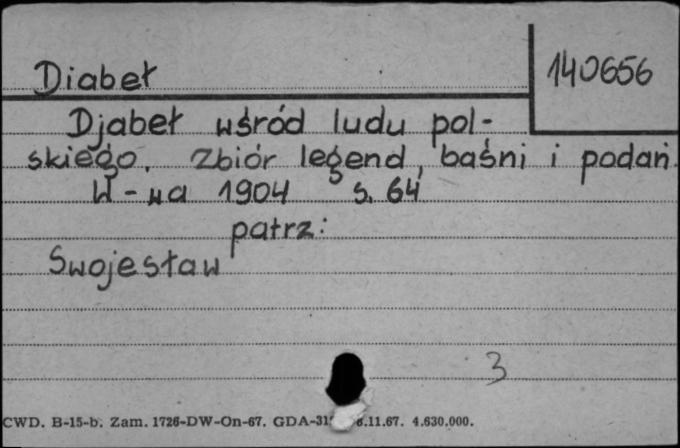 Diabeł
140656
Djabeł wśród ludu pol-
skiego. Zbiór legend, baśni i podań.
W-wa 1904 s. 64
patrz:
Swojesław
3
CWD. B-15-b. Zam. 1726-DW-On-67. GDA-31 6.11.67. 4.630.000.